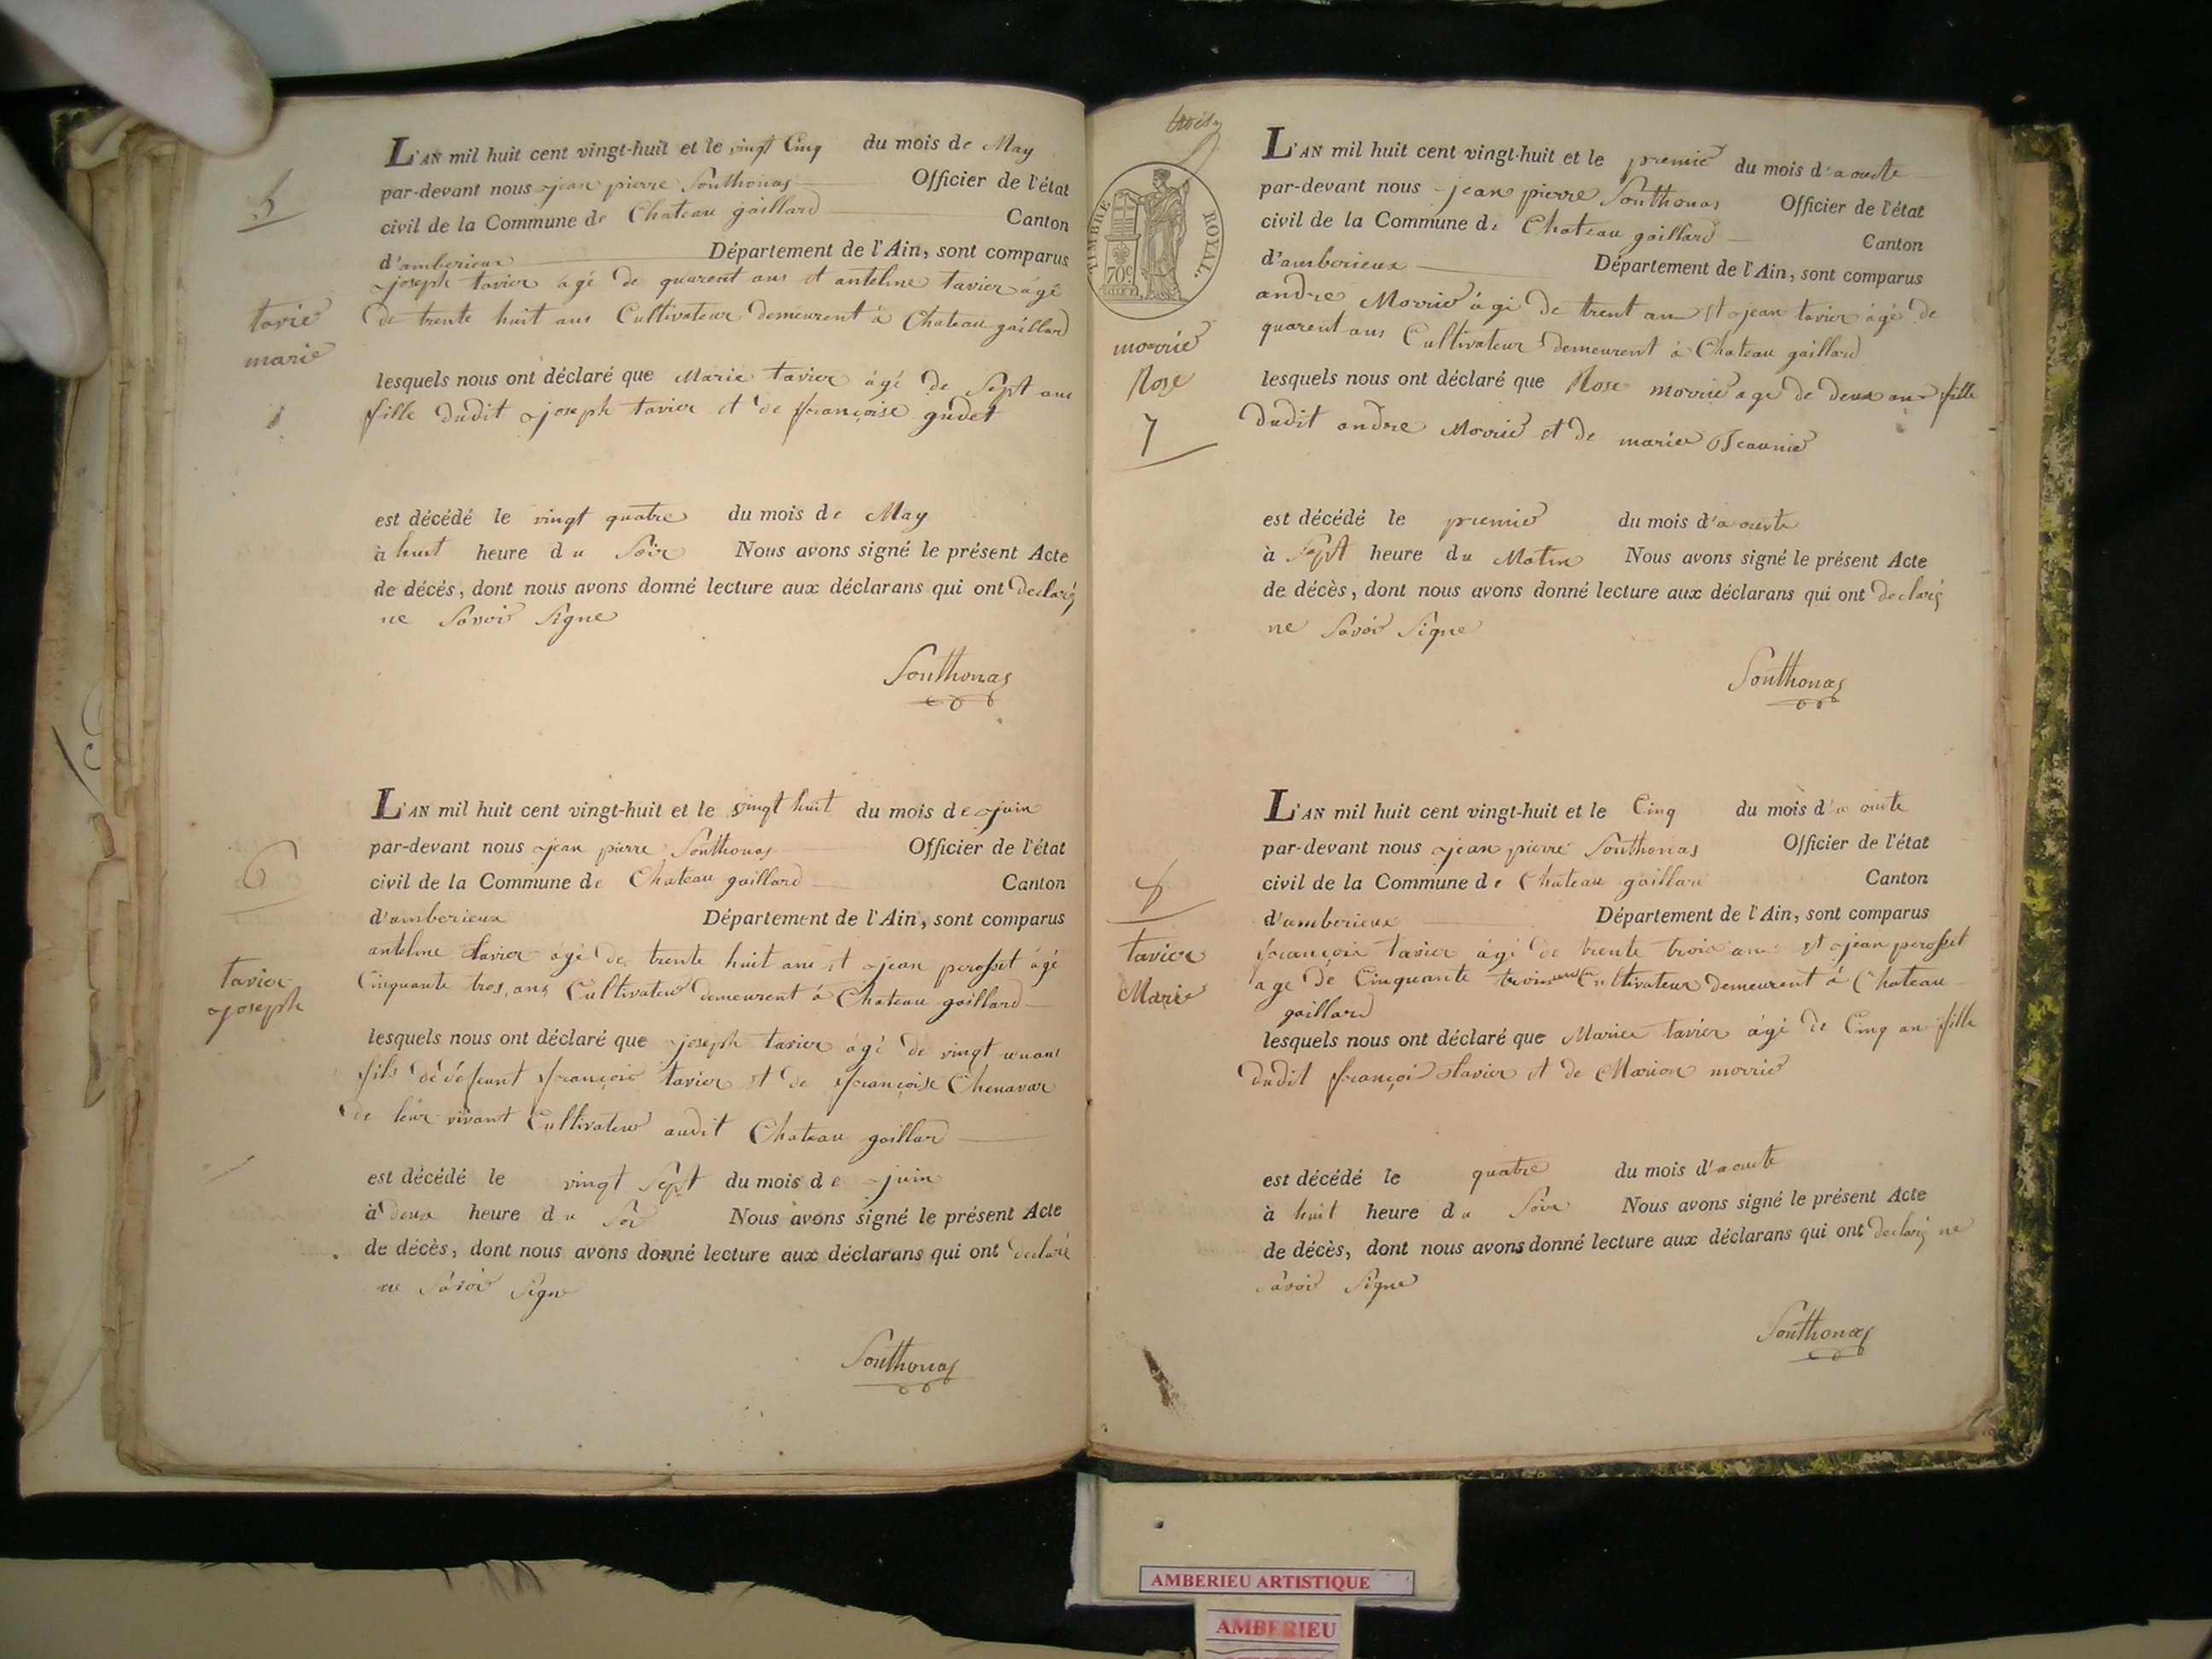 5
tavié
marie
L'AN mil huit cent vingt-huit et le vingt Cinq du mois de May
par-devant nous jean pierre Southonas Officier de l'état
civil de la Commune de Chateau gaillard Canton
d'amberieux Département de l'Ain, sont comparus
joseph tavier âgé de quarent ans et antelme tavier âgé
de trente huit ans Cultivateur demeurent à Chateau gaillard
lesquels nous ont déclaré que Marie tavier âgé de Sept ans
fille dudit joseph tavier et de françoise gudet
est décédé le vingt quatre du mois de May
à huit heure du Soir Nous avons signé le présent Acte
de décès, dont nous avons donné lecture aux déclarans qui ont declarés
ne Savoir Signe
Southonas
6
tavier
joseph
L'AN mil huit cent vingt-huit et le vingt huit du mois de juin
par-devant nous jean pierre Southonas Officier de l'état
civil de la Commune de Chateau gaillard Canton
d'amberieux Département de l'Ain, sont comparus
antelme tavier âgé de trente huit ans et jean perosset âgé
Cinquante tros ans Cultivateur demeurent à Chateau gaillard
lesquels nous ont déclaré que joseph tavier âgé de vingt un ans
fils de défeunt françois tavier et de françoise Chenavar
de leur vivant Cultivateur audit Chateau gaillard
est décédé le vingt Sept du mois de juin
à deux heure du Soi Nous avons signé le présent Acte
de décès, dont nous avons donné lecture aux déclarans qui ont declaré
ne Savoir Signe
Southonas
trois
TIMBRE ROYAL.
70c.
morrié
Rose
7
L'AN mil huit cent vingt-huit et le premié du mois d'aouste
par-devant nous jean pierre Southonas Officier de l'état
civil de la Commune de Chateau gaillard Canton
d'amberieux Département de l'Ain, sont comparus
andre Morrié âgé de trent an et jean tavier âgé de
quarent ans Cultivateur demeurent à Chateau gaillard
lesquels nous ont déclaré que Rose morrié age de deux an fille
dudit andre Morrié et de marie
est décédé le premié du mois d'aouste
à Sept heure du Matin Nous avons signé le présent Acte
de décès, dont nous avons donné lecture aux déclarans qui ont declarés
ne Savoir Signe
Southonas
8
tavier
Marie
L'AN mil huit cent vingt-huit et le Cinq du mois d'aouste
par-devant nous jean pierre Southonas Officier de l'état
civil de la Commune de Chateau gaillard Canton
d'amberieux Département de l'Ain, sont comparus
françois tavier âgé de trente trois an et jean perosset
age de Cinquante trois ans Cultivateur demeurent à Chateau
gaillard
lesquels nous ont déclaré que Marie tavier âgé de Cinq an fille
dudit françois tavier et de Marion morrié
est décédé le quatre du mois d'aouste
à huit heure du Soir Nous avons signé le présent Acte
de décès, dont nous avons donné lecture aux déclarans qui ont declarés ne
Savoir Signe
Southonas
AMBERIEU ARTISTIQUE
AMBERIEU